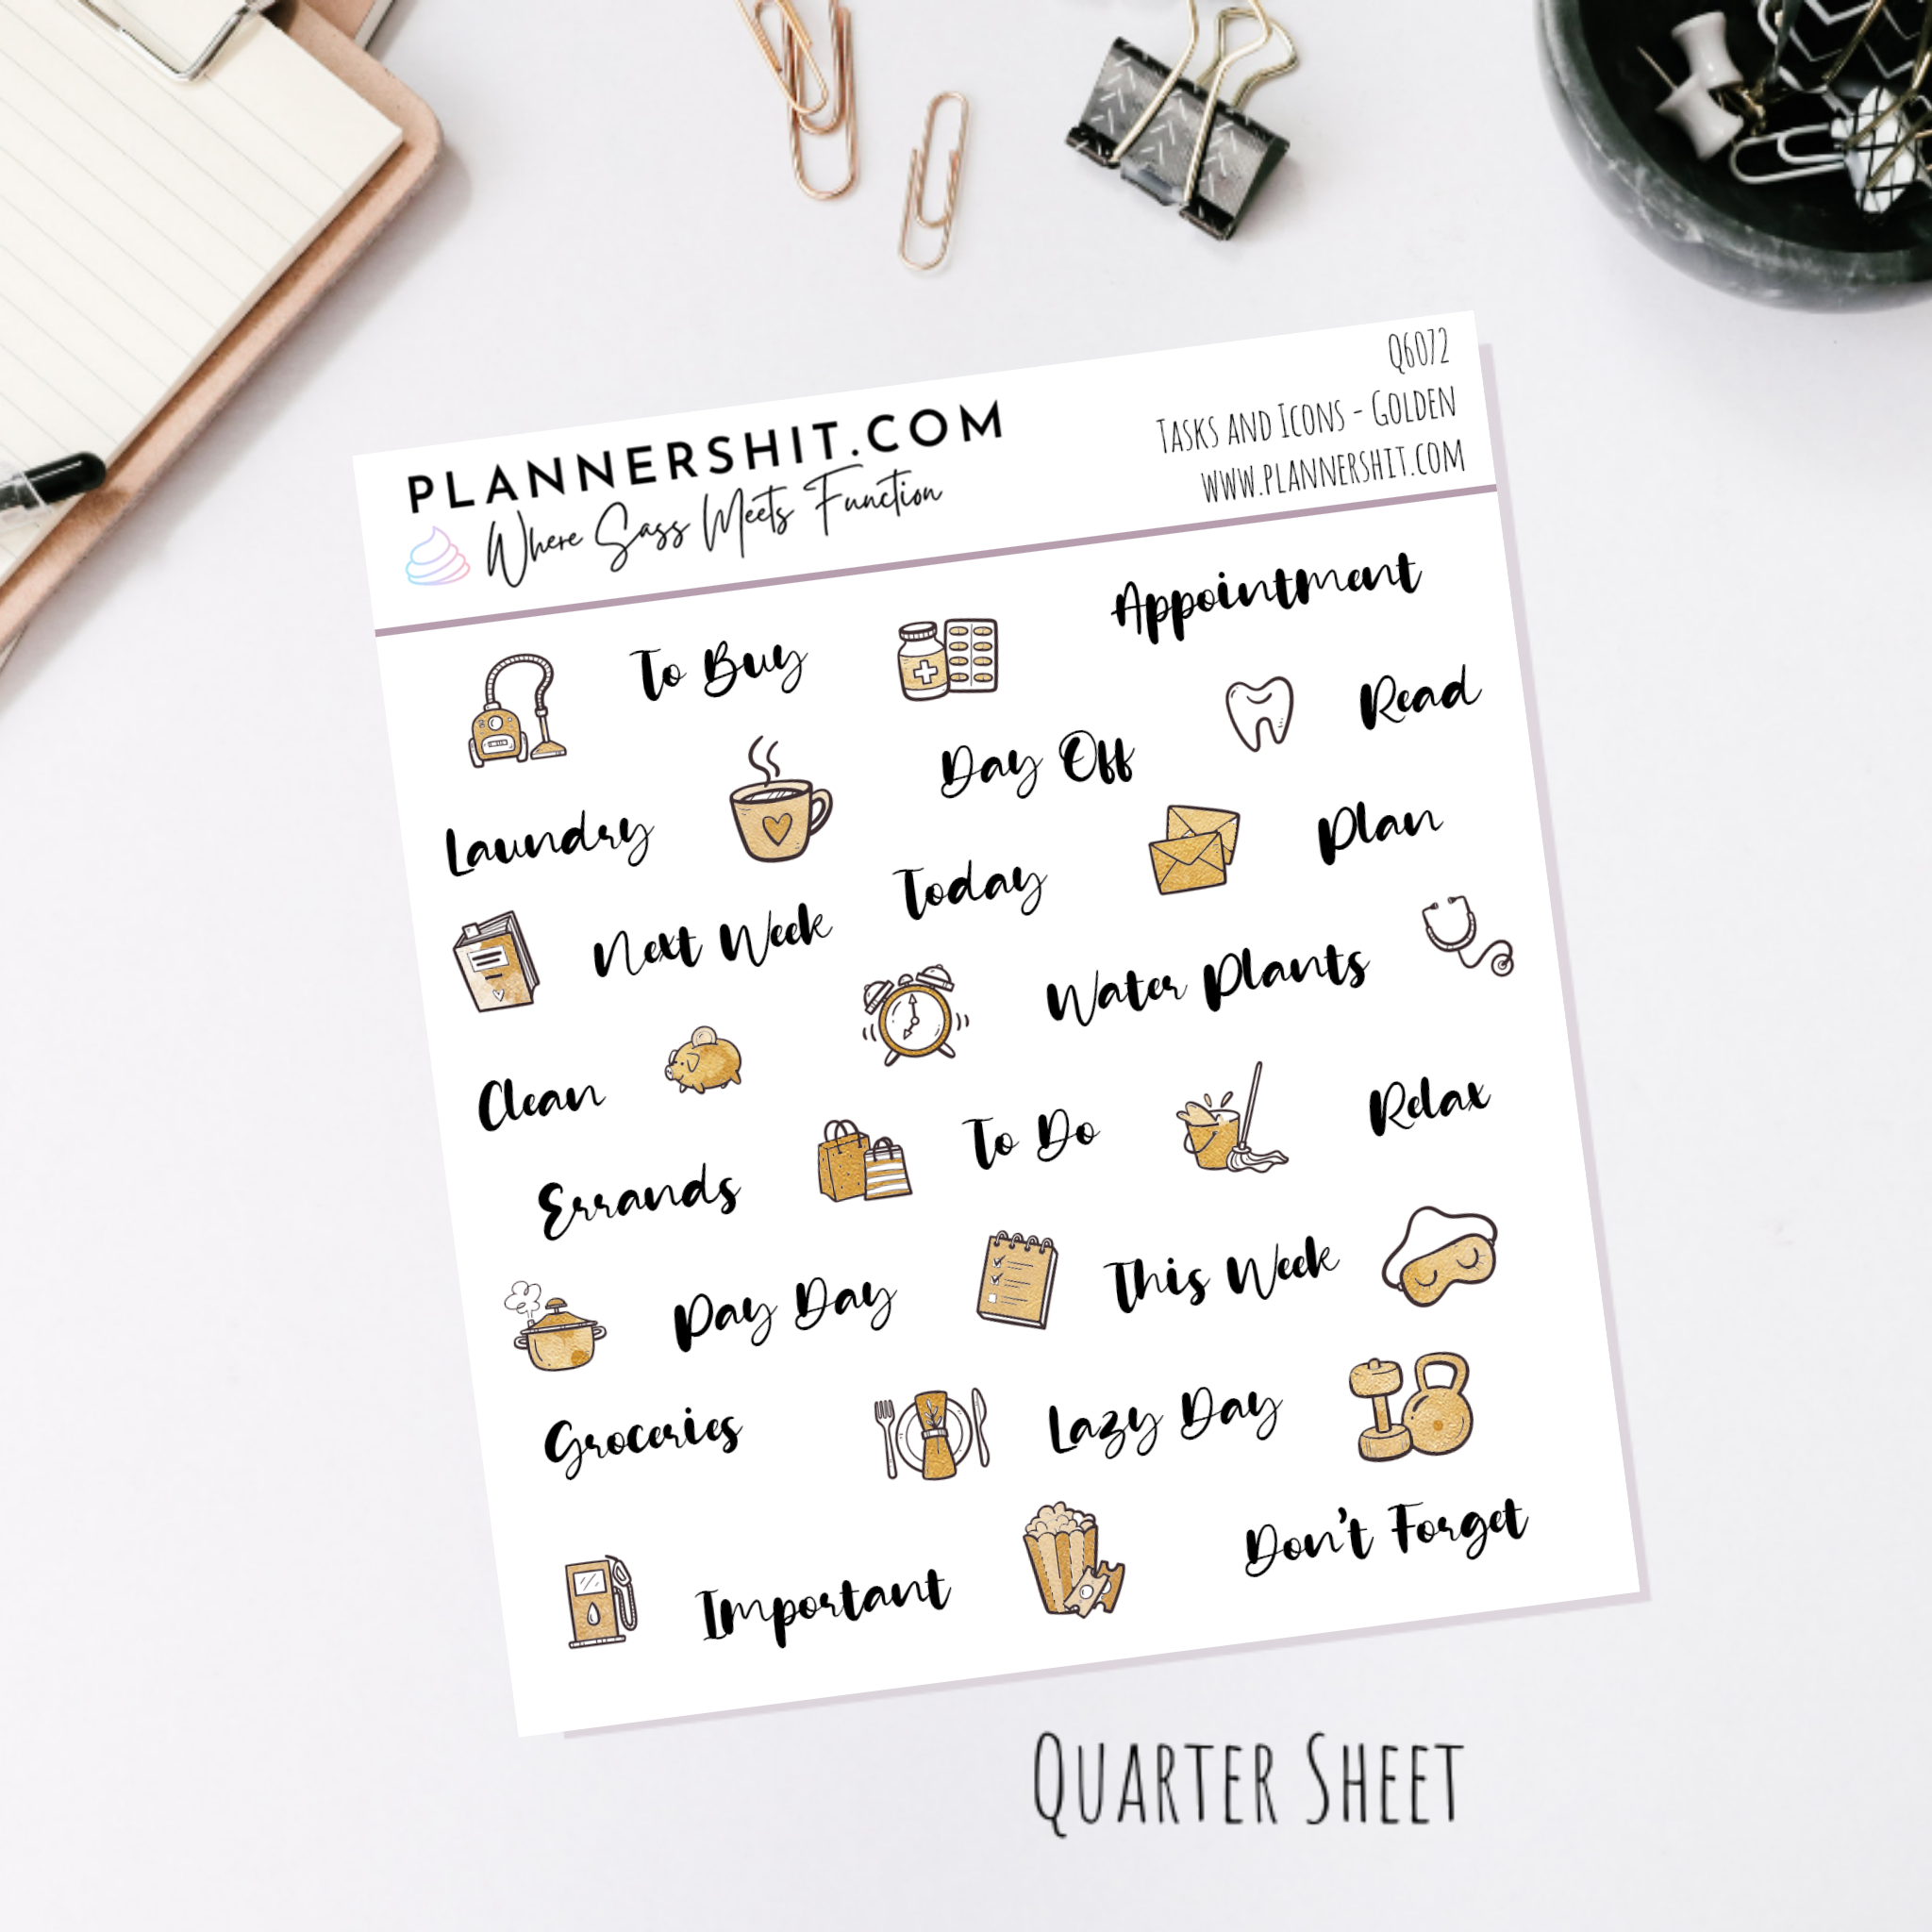 PLANNERSHIT.COM
Where Sass Meets Function
Q6072
Tasks and Icons - Golden
www.plannershit.com
To Buy
Appointment
Read
Day Off
Laundry
Plan
Today
Next Week
Water Plants
Clean
Relax
To Do
Errands
This Week
Pay Day
Lazy Day
Groceries
Don't Forget
Important
Quarter Sheet